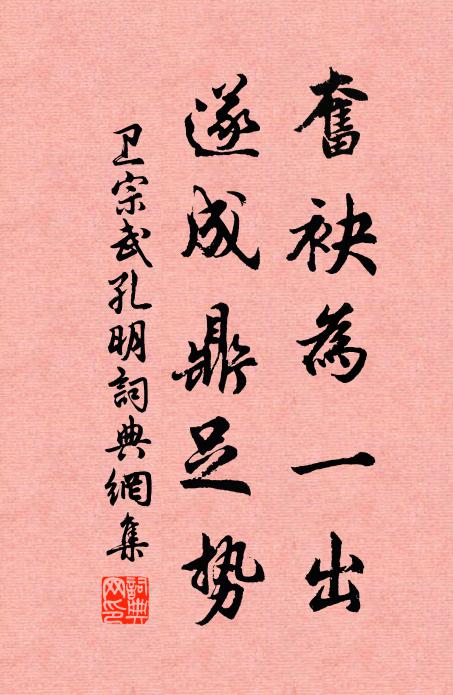 奮袂為一出
遂成鼎足势
卫宗武孔明詞典網集
詞典網印